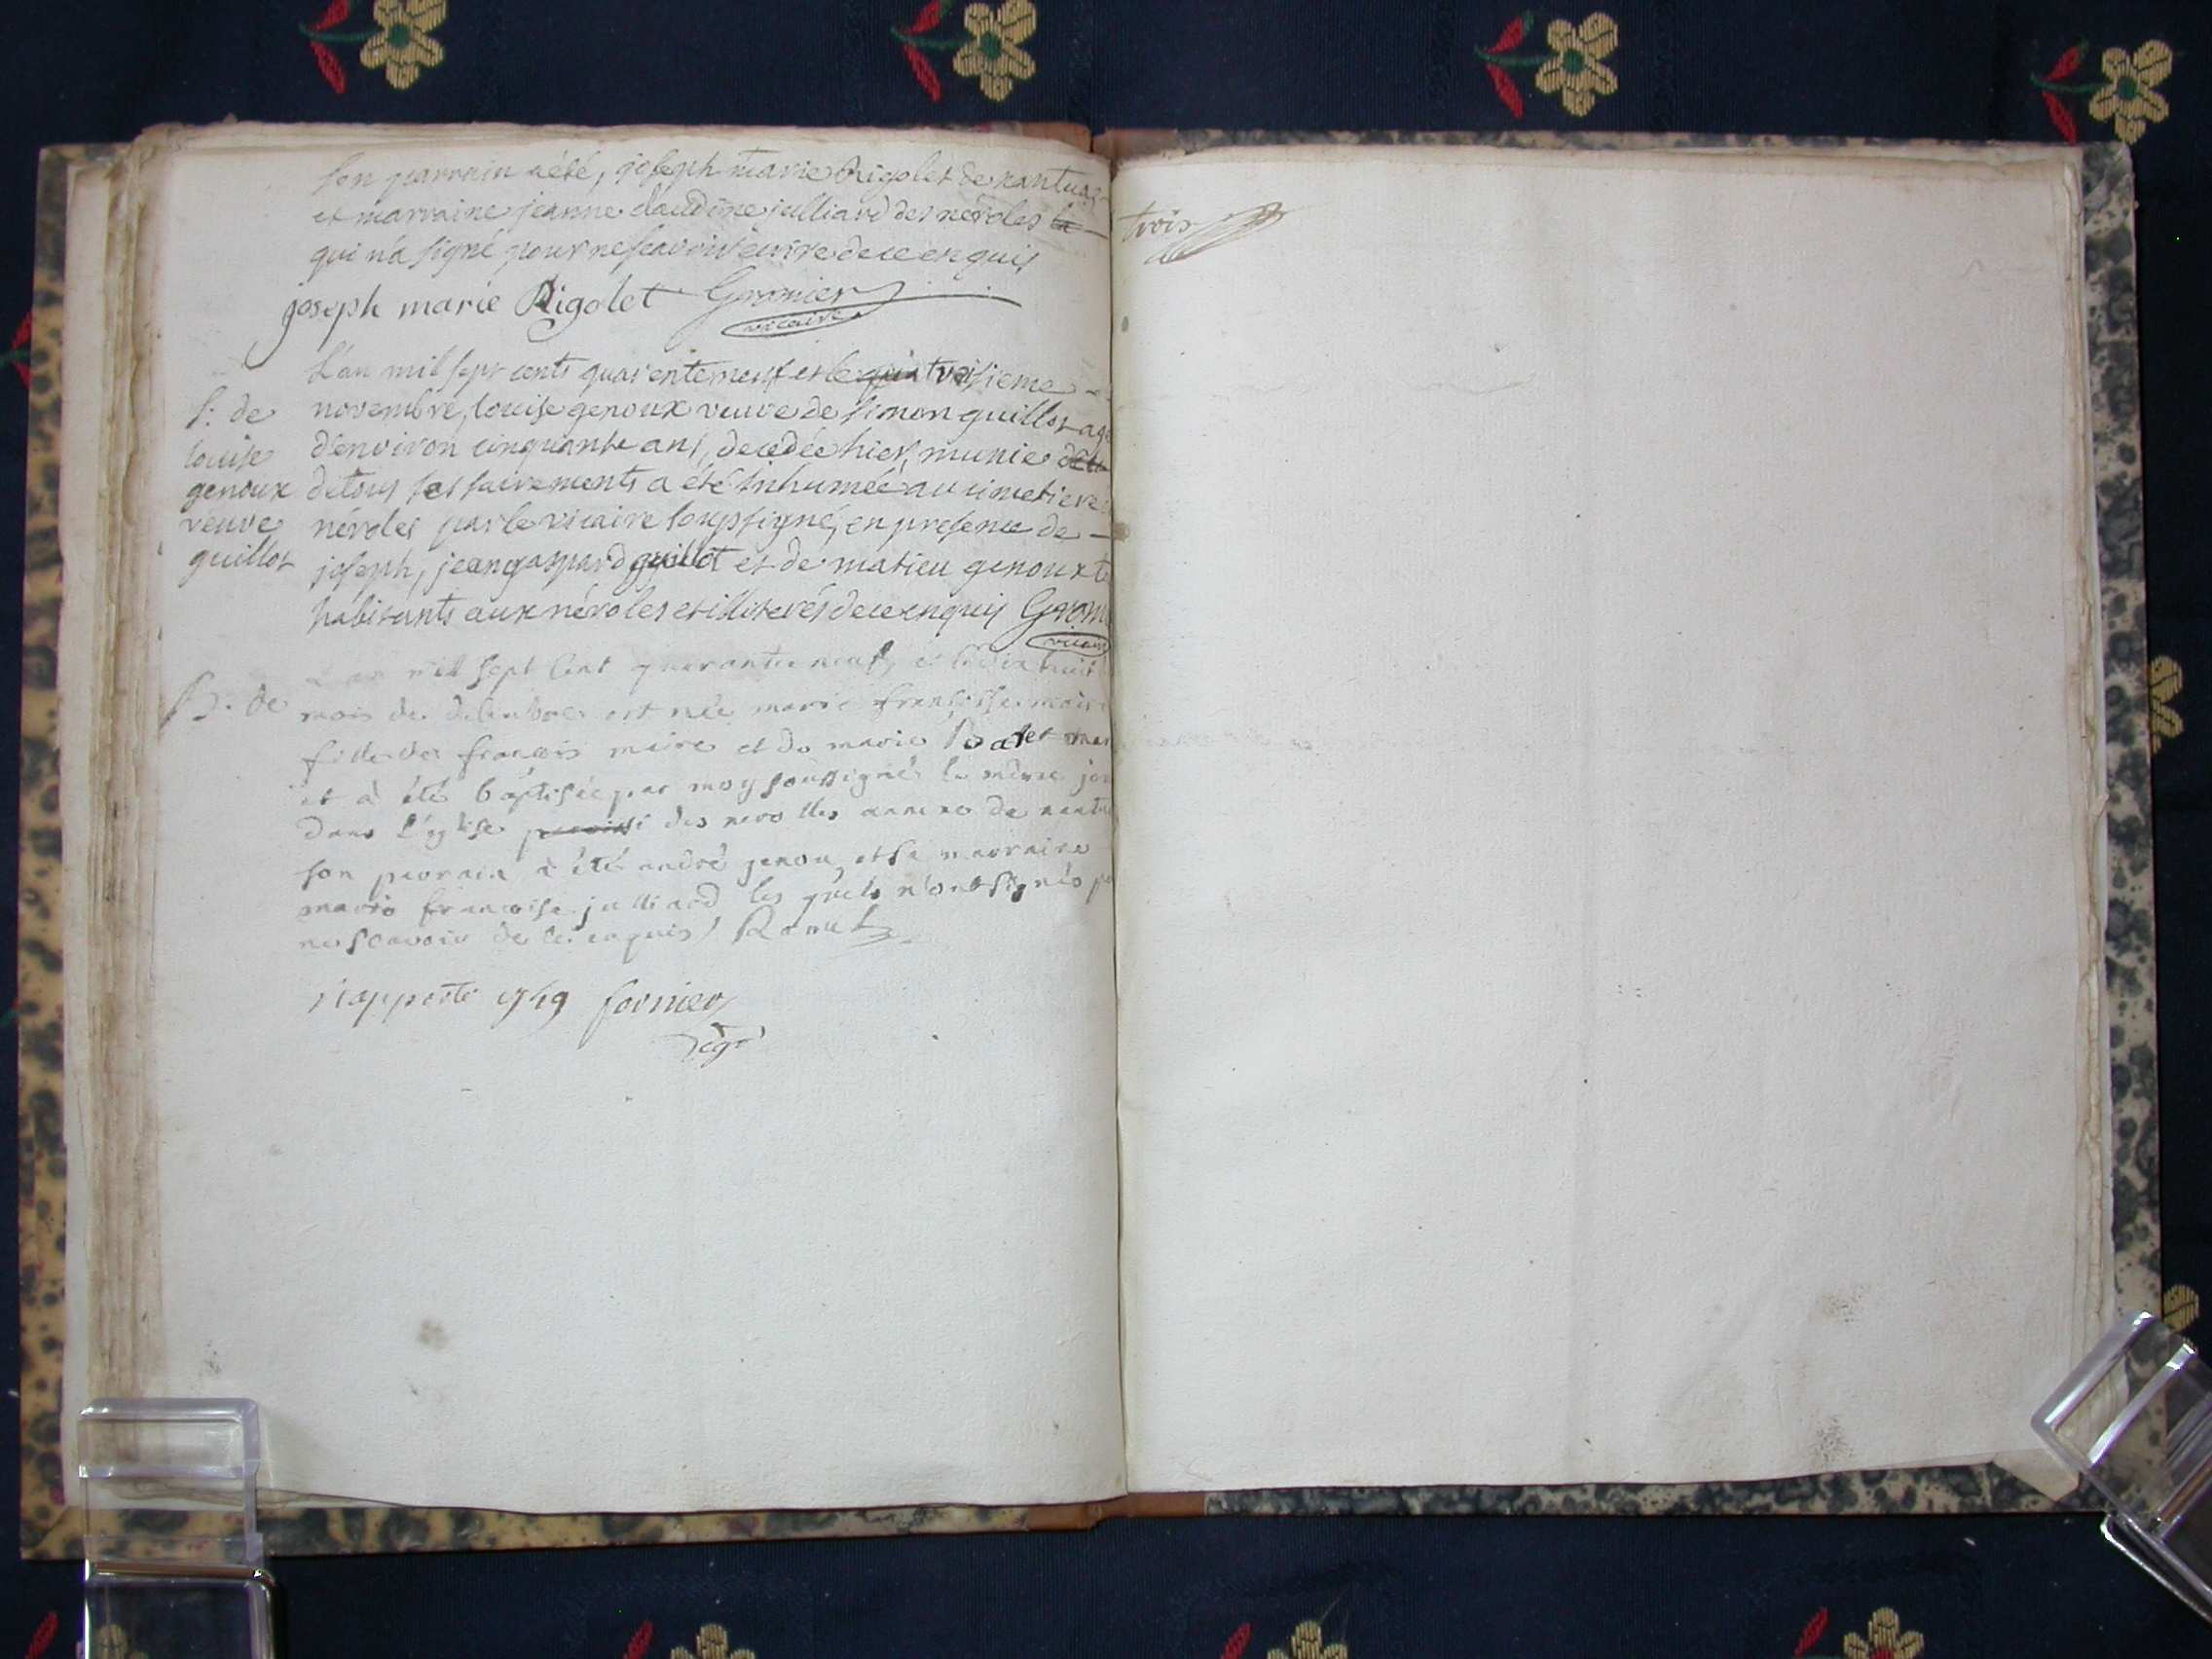 son parrain a été, joseph marie Rigolet de nantua,
et marraine jeanne claudine julliard des néroles
qui n'a signé pour ne scavoir écrire de ce enquis
joseph marie Rigolet Gromier
vicaire
L'an mil sept cents quarenteneuf et le troisieme
novembre, louise genoux veuve de simon guillot agé
d'environ cinquante ans, decedée hier, munie
de tous ses sacrements a été inhumée au cimetiere
néroles par le vicaire soussigné, en presence de
joseph, jean gaspard guillot et de matieu genoux
habitants aux néroles et illiterés de ce enquis Grom
vicaire
S: de
louise
genoux
veuve
guillot
L'an mil sept cent quarante neuf, et le dix huit
B. de
mois de decembre est née marie francoise maire
fille de francois maire et de marie
et à été baptisée par moy soussigné le même jou
dans l'eglise des nerolles annexe de nantu
son parain à été andré genou et sa marraine
marie francoise julliard les quels n'ont signés po
ne scavoir de ce enquis Ramet
rapporté 1749 fornier
trois